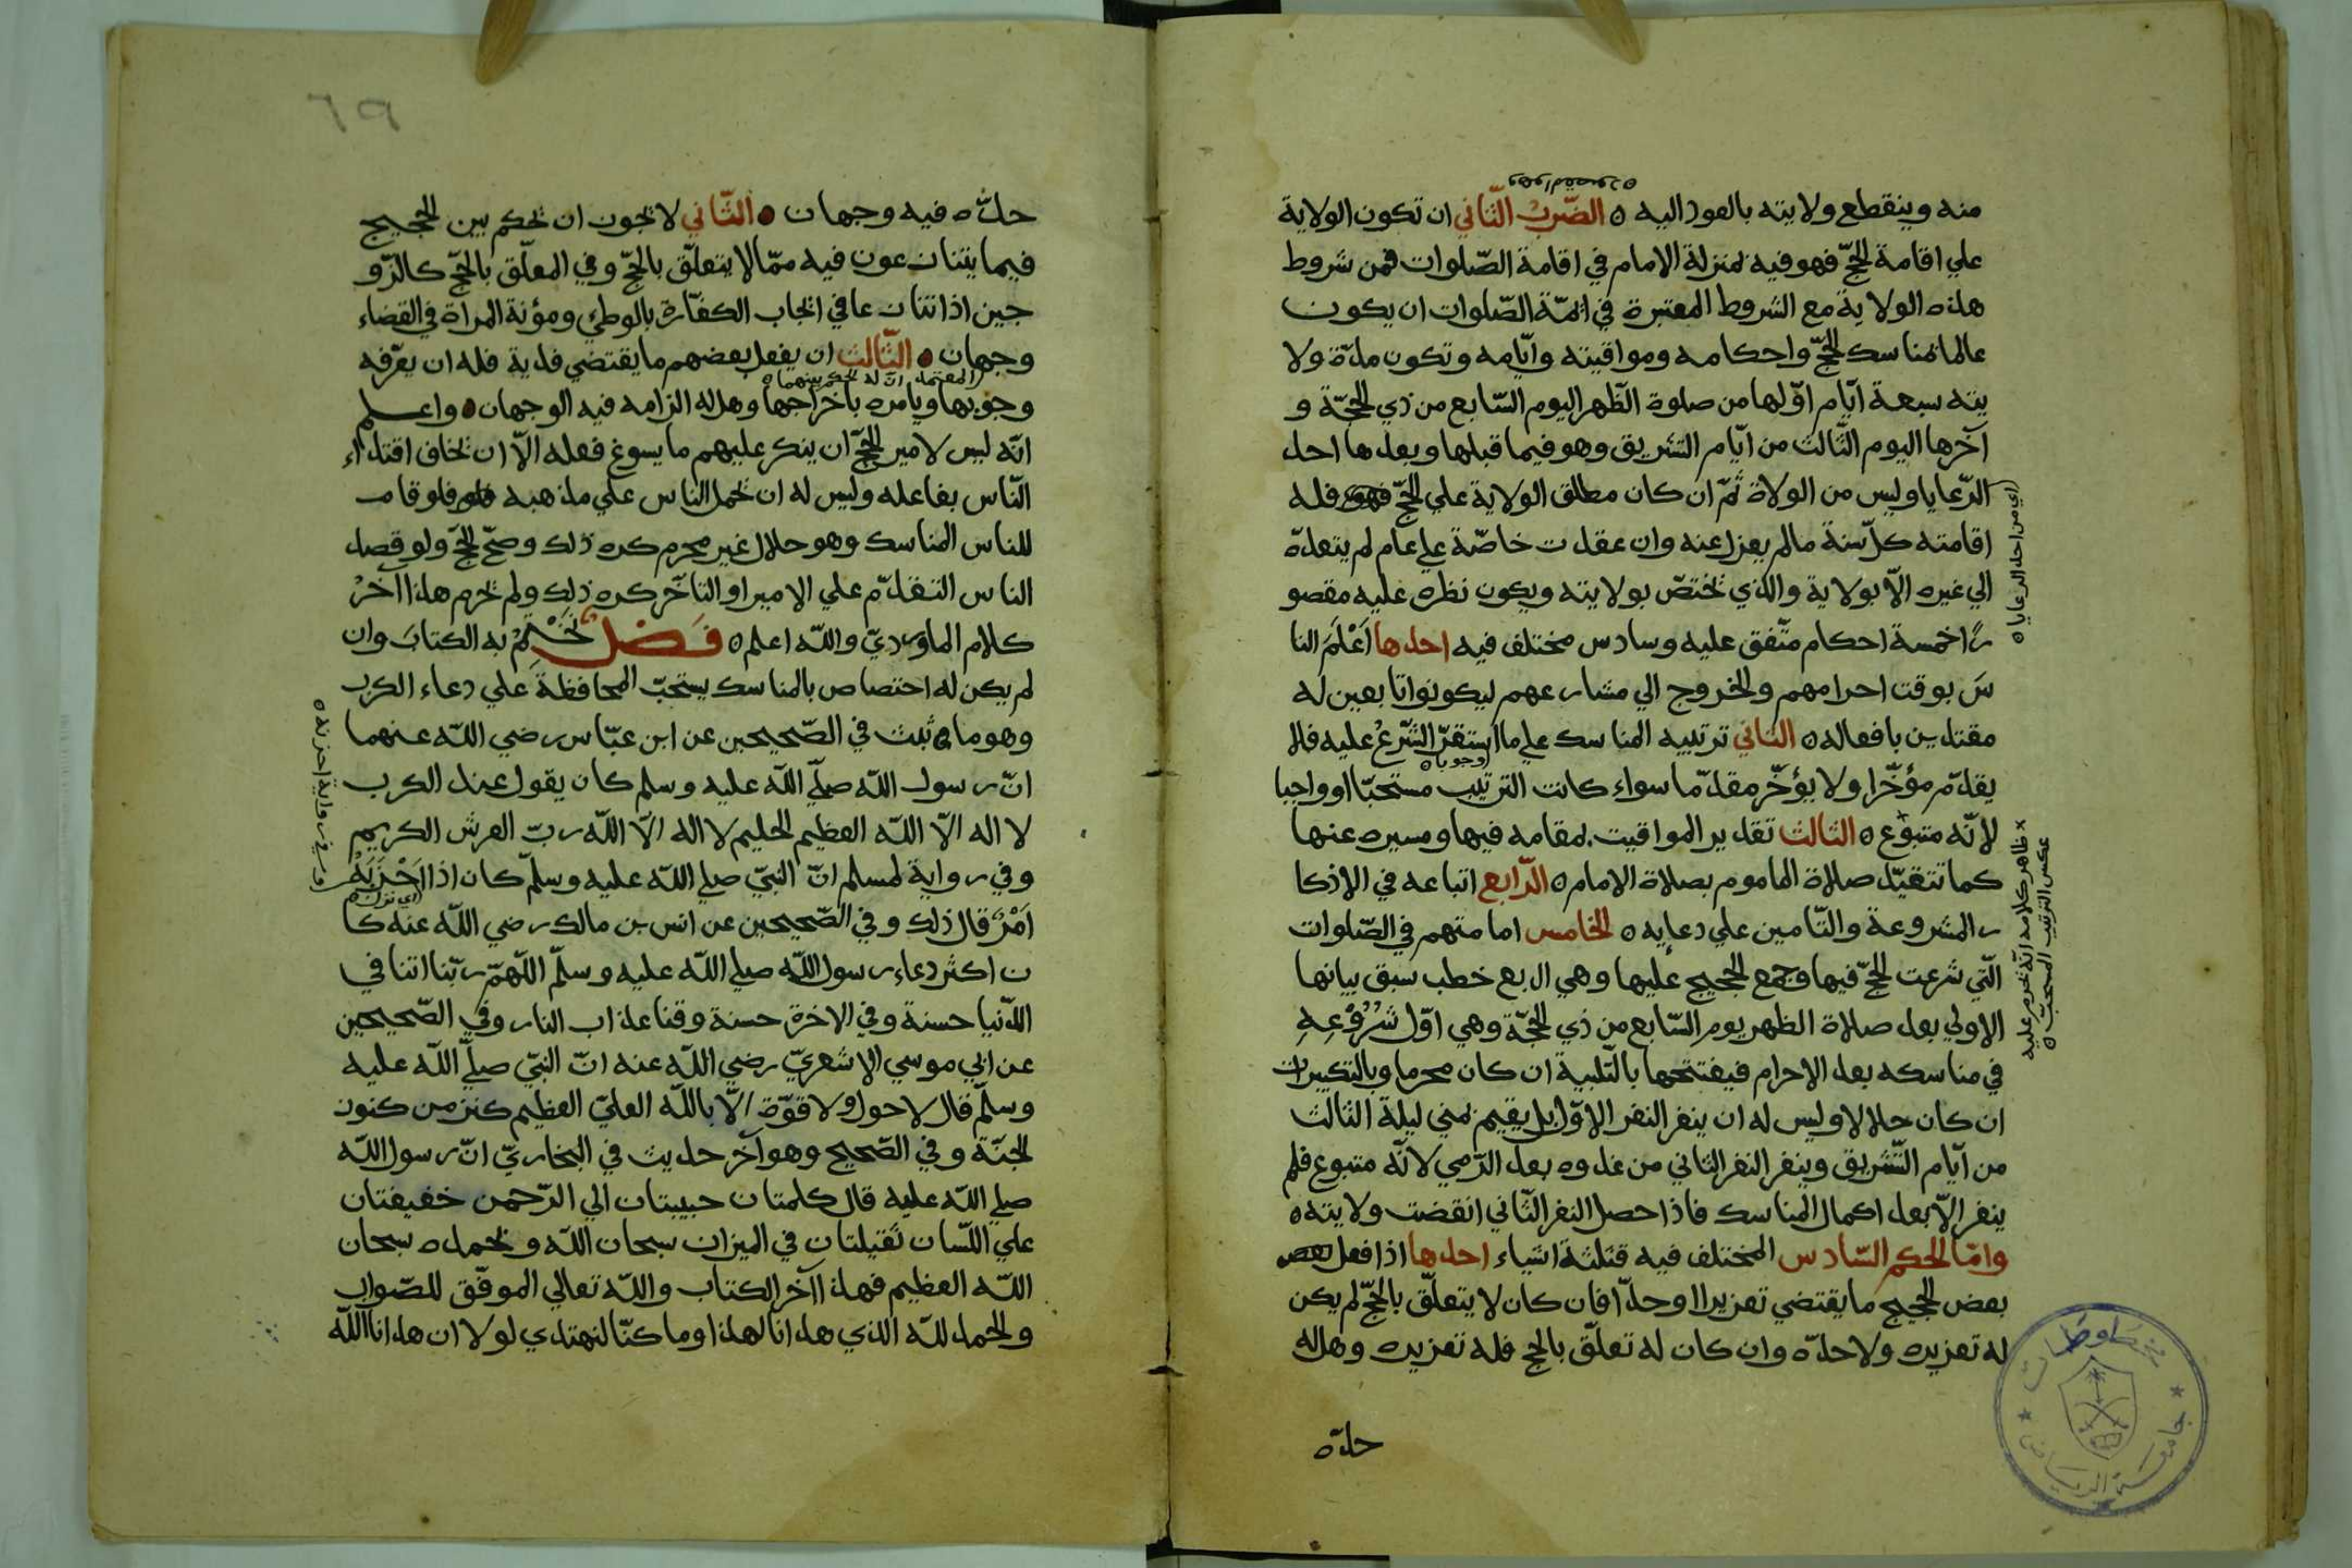 وهو المقصود ٥
منه وينقطع ولايته بالعود اليه ٥ الضّربُ الثّاني ان تكون الولاية
علي اقامة الحجّ فهو فيه بمنزلة الامام في اقامة الصّلوات فمن شروط
هذه الولاية مع الشروط المعتبرة في ائمّة الصّلوات ان يكون
عالما بمناسك الحجّ واحكامه ومواقيته وايّامه وتكون مدّة ولا
يته سبعة ايّام اوّلها من صلوة الظّهر اليوم السّابع من ذي الحجّة و
آخرها اليوم الثّالث من ايّام التشريق وهو فيما قبلها وبعدها احد
الرّعايا وليس من الولاة ثمّ ان كان مطلق الولاية علي الحجّ فله
اقامته كلّ سنة ما لم يعزل عنه وان عقدت خاصّة علي عام لم يتعدّه
الي غيره الّا بولاية والذي يختصّ بولايته ويكون نظره عليه مقصو
رًا خمسة احكام متّفق عليه وسادس مختلف فيه احدها اَعْلَمَ النا
سَ بوقت احرامهم والخروج الي مشاعرهم ليكونوا تابعين له
مقتدين بافعاله ٥ الثاني ترتيبه المناسك علي ما استقرّ الشّرعُ عليه فلا
وجوبا ٥
يقدّم مؤخّرا ولا يؤخّر مقدّما سواء كانت الترتيب مستحبّا او واجبا
لانّه متبوع ٥ الثالث تقدير المواقيت بمقامه فيها ومسيره عنها
كما تتقيّد صلاة الماموم بصلاة الامام ٥ الرّابع اتباعه في الاذكا
ر المشروعة والتّامين علي دعايه ٥ الخامس امامتهم في الصّلوات
الّتي شرعت الحجّ فيها وجمع الحجيج عليها وهي اربع خطب سبق بيانها
الاولي بعد صلاة الظهر يوم السّابع من ذي الحجّة وهي اوّل شُرُوْعِهِ
في مناسكه بعد الاحرام فيفتتحها بالتّلبية ان كان محرما وبالتكبيرات
ان كان حلالا وليس له ان ينفر النفر الاوّل بل يقيم بمني ليلة الثالث
من ايّام التّشريق وينفر النفر الثاني من غدوه بعد الرّمي لانّه متبوع فلم
ينفر الّا بعد اكمال المناسك فاذا حصل النفر الثّاني انقضت ولايته ٥
وامّا الحكم السّادس المختلف فيه فثلثة اشياء احدها اذا فعل
بعض الحجيج ما يقتضي تعزيرا او حدّا فان كان لا يتعلّق بالحجّ لم يكن
له تعزيره ولا حدّه وان كان له تعلّق بالحج فله تعزيره وهل له
حدّه
اي من احد الرعايا ٥
ظاهر كلامه انّه يحرم عليه
عكس الترتيب المستحبّ ٥
جامعة الرياض
٦٩
حدّه فيه وجهان ٥ الثّاني لا يجوز ان يحكم بين الحجيج
فيما يتنازعون فيه ممّا لا يتعلّق بالحجّ وفي المعلّق بالحجّ كالزّو
جين اذا تنازعا في ايجاب الكفّارة بالوطئ ومؤنة المراة في القضاء
وجهان ٥ الثّالث ان يفعل بعضهم ما يقتضي فدية فله ان يعرّفه
المعتمد انّ له يحكم بينهما ٥
وجوبها ويامره باخراجها وهل له الزامه فيه الوجهان ٥ واعلم
انّه ليس لامير الحجّ ان ينكر عليهم ما يسوغ فعله الّا ان يخاف اقتداء
النّاس بفاعله وليس له ان يحمل الناس علي مذهبه فلو اقام
للناس المناسك وهو حلال غير محرم كره ذلك وصحّ الحجّ ولو قصد
الناس التقدّم علي الامير او التأخّر كره ذلك ولم يحرم هذا آخرُ
كلام الماورديّ واللّه اعلم ٥ فصل نَخْتِمُ به الكتابَ وان
لم يكن له اختصاص بالمناسك يستحبّ المحافظة علي دعاء الكرب
وهو ما ثبت في الصّحيحين عن ابن عبّاس رضي اللّه عنهما
انّ رسول اللّه صلّي اللّه عليه وسلم كان يقول عند الكرب
لا اله الّا اللّه العظيم الحليم لا اله الّا اللّه ربّ العرش الكريم
وفي رواية لمسلم انّ النبيّ صلي اللّه عليه وسلّم كان اذا اَحْزَبَهُ
اي نزل ٥
اَمْرٌ قال ذلك وفي الصّحيحين عن انس بن مالك رضي اللّه عنه كا
ن اكثر دعاء رسول اللّه صلي اللّه عليه وسلّم اللّهمّ ربّنا اتنا في
الدّنيا حسنة وفي الاخرة حسنة وقنا عذاب النار وفي الصّحيحين
عن ابي موسي الاشعريّ رضي اللّه عنه انّ النبيّ صلّي اللّه عليه
وسلّم قال لا حول ولا قوّة الّا باللّه العليّ العظيم كنز من كنوز
الجنّة وفي الصّحيح وهو آخر حديث في البخاريّ انّ رسول اللّه
صلي اللّه عليه قال كلمتان حبيبتان الي الرّحمن خفيفتان
علي اللّسان ثقيلتان في الميزان سبحان اللّه وبحمده سبحان
اللّه العظيم فهذا آخر الكتاب واللّه تعالي الموفّق للصّواب
والحمد للّه الذي هدانا لهذا وما كنّا لنهتدي لولا ان هدانا اللّه
في رواية احزنه ٥